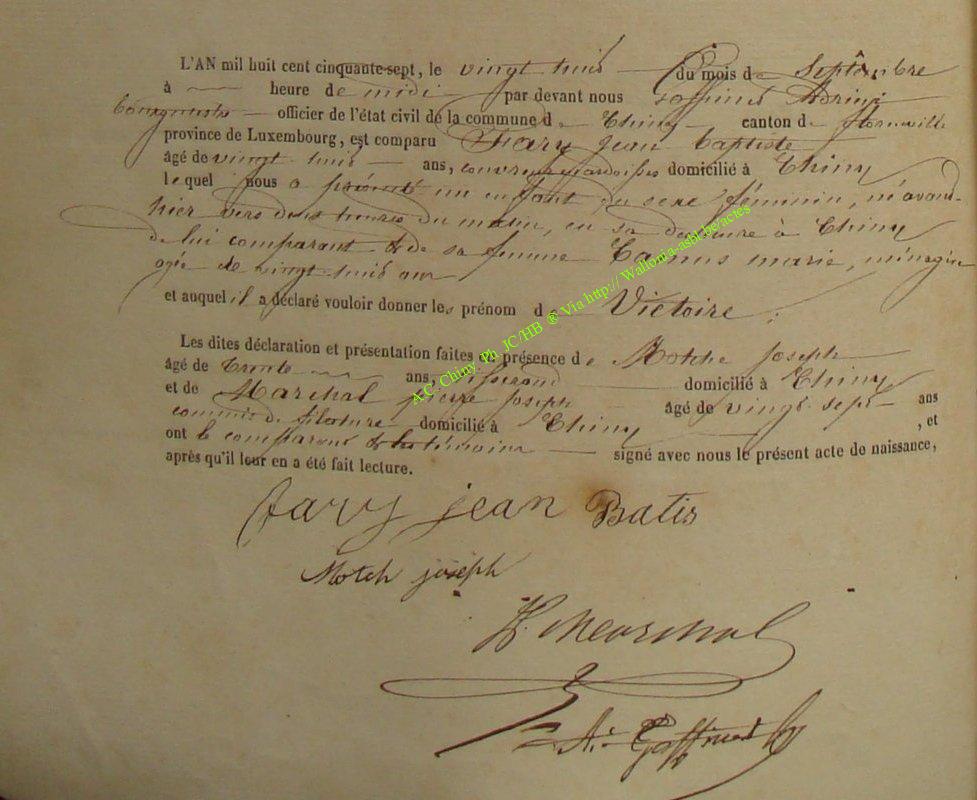 L'AN mil huit cent cinquante-sept, le vingt trois du mois de Septembre
à heure de midi par devant nous Goffinet Adrien
bourgmestre officier de l'état civil de la commune de Chiny canton de Florenville
province de Luxembourg, est comparu Fary jean baptiste
âgé de vingt trois ans, couvreur d'ardoises domicilié à Chiny
lequel nous a présenté un enfant du sexe féminin, né avant-
hier vers deux heures du matin, en sa demeure à Chiny
de lui comparant & de sa femme Camus marie, ménagère
agée de vingt trois ans
et auquel il a déclaré vouloir donner les prénom de Victoire.
Les dites déclaration et présentation faites en présence de Motche joseph
âgé de Trente ans, tisserand domicilié à Chiny
et de Maréchal pierre joseph âgé de vingt sept ans
commis de filature domicilié à Chiny, et
ont le comparant & les témoins signé avec nous le présent acte de naissance,
après qu'il leur en a été fait lecture.
fary jean Batis
Motch joseph
Marchal
A. Goffinet
A.C. Chiny Ph. JC/HB ® Via http:// Wallonia-asbl.be/actes